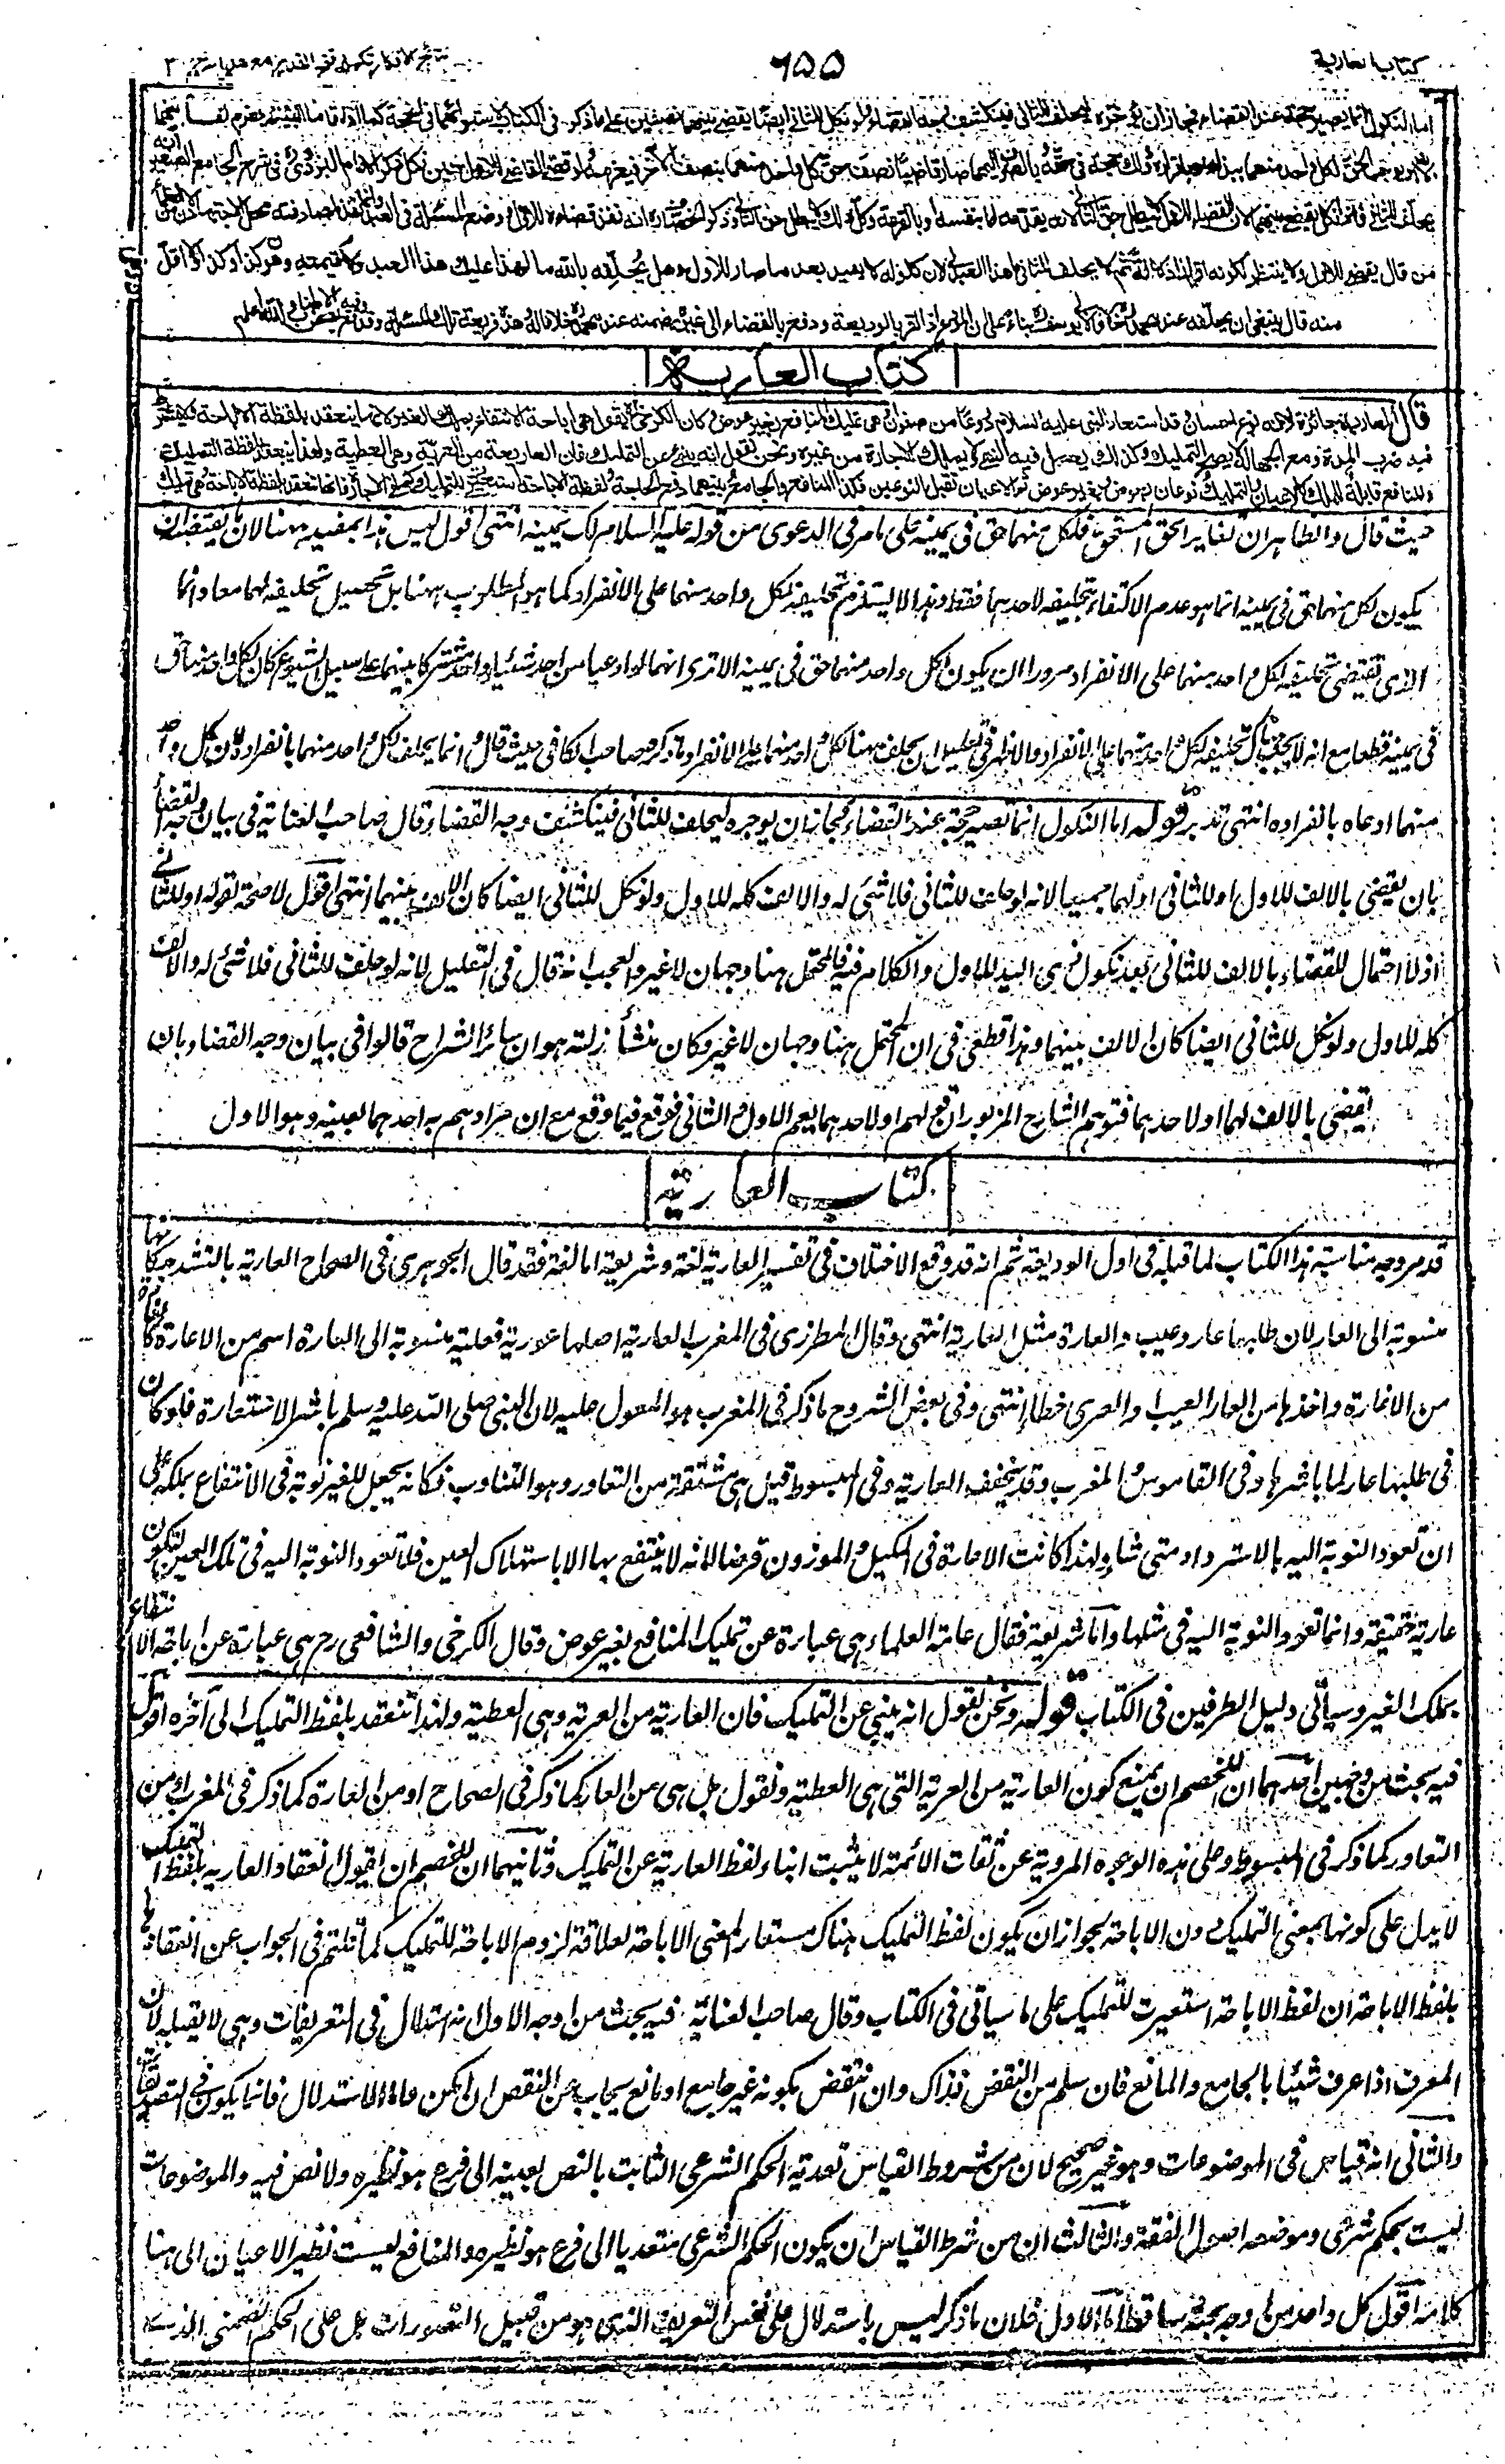 كتاب العارية
٦٥٥
نتائج الافكار تكملة فتح القدير مع هداية ج ٣
اما النكول انما يصير حجة عند القضاء فجاز ان يؤخره ليحلف للثاني فينكشف وجه القضاء ولو نكل للثاني ايضا يقضى بينهما نصفين على ما ذكر في الكتاب لاستوائهما في الحجة كما اذا اقاما البينة ويغرم الفا بينهما
لانه اوجب الحق لكل واحد منهما ببذله او باقراره وذلك حجة في حقه وبالصرف اليهما صار قاضيا نصف حق كل واحد منهما بنصف الآخر فيغرمه ولو قضى القاضي للاول حين نكل ذكر الامام البزدوي في شرح الجامع الصغير انه
يحلف للثاني فاذا نكل يقضى بينهما لان القضاء للاول لا يبطل حق الثاني لانه يقدمه اما بنفسه او بالقرعة وكل ذلك لا يبطل حق الثاني وذكر الخصاف انه نفذ قضاءه للاول ووضع المسئلة في العبد وانما نفذ لمصادفته محل الاجتهاد لان من العلماء
من قال يقضى للاول ولا ينتظر لكونه اقرارا دلالة ثم لا يحلف للثاني ما هذا العبد لي لان نكوله لا يفيد بعد ما صار للاول وهل يحلفه بالله ما لهذا عليك هذا العبد ولا قيمته وهو كذا وكذا ولا اقل
منه قال ينبغي ان يحلفه عند محمد خلافا لابي يوسف بناء على ان المودع اذا اقر بالوديعة ودفع بالقضاء الى غيره يضمنه عند محمد خلافا له وهذه فريعة تلك المسئلة وقد وقع فيه بعض الاطناب والله اعلم
كتاب العارية
قال العارية جائزة لانه نوع احسان وقد استعار النبي عليه السلام دروعا من صفوان وهي تمليك المنافع بغير عوض وكان الكرخي يقول هي اباحة الانتفاع بملك الغير لانها ينعقد بلفظة الاباحة ولا يشترط
فيه ضرب المدة ومع الجهالة لا يصح التمليك وكذلك يعمل فيه النهي ولا يملك الاجارة من غيره ونحن نقول انه ينبئ عن التمليك فان العارية من العرية وهي العطية ولهذا ينعقد بلفظة التمليك
والمنافع قابلة للملك كالاعيان والتمليك نوعان بعوض وبغير عوض ثم الاعيان تقبل النوعين فكذا المنافع والجامع بينهما دفع الحاجة ولفظة الاباحة استعيرت للتمليك كما في الاجارة فانها تنعقد بلفظة الاباحة وهي تمليك
حيث قال والظاهر ان تغاير الحق المستحق فلكل منهما حق في يمينه على ما مر في الدعوى من قوله عليه السلام لك يمينه انتهى اقول ليس هذا بمفيد ههنا لان ما يقتضي ان
يكون لكل منهما حق في يمينه انما هو عدم الاكتفاء بتحليفه لاحدهما فقط وهذا لا يستلزم تحليفه لكل واحد منهما على الانفراد كما هو المطلوب ههنا بل تحصيل تحليفه لهما معا وانما
الذي تقتضي تحليفه لكل واحد منهما على الانفراد مرورا ان يكون لكل واحد منهما حق في يمينه الا ترى انهما لو ادعيا من احد شيئا واحدا مشتركا بينهما على سبيل الشيوع كان لكل واحد منهما حق
في يمينه قطعا مع انه لا يجب هناك تحليفه لكل واحد منهما على الانفراد والاظهر في تعليل ان يحلف ههنا لكل واحد منهما على الانفراد ما ذكره صاحب الكافي حيث قال وانما يحلف لكل واحد منهما بانفراده لان كل واحد
منهما ادعاه بانفراده انتهى تدبر قوله اما النكول انما تصير حجة عند القضاء فجاز ان يوخره ليحلف للثاني فينكشف وجه القضاء وقال صاحب العناية في بيان وجه القضاء
بان يقضى بالالف للاول او للثاني او لهما جميعا لانه لو حلف للثاني فلا شئ له والالف كله للاول ولو نكل للثاني ايضا كان الالف بينهما انتهى اقول لا صحة لقوله او للثاني
اذ لا احتمال للقضاء بالالف للثاني بعد نكول ذي اليد للاول والكلام فيه فالمحتمل ههنا وجهان لا غير والعجب انه قال في التعليل لانه لو حلف للثاني فلا شئ له والالف
كله للاول ولو نكل للثاني ايضا كان الالف بينهما وهذا قطعي في ان المحتمل ههنا وجهان لا غير وكان منشأ زلته هو ان سائر الشراح قالوا في بيان وجه القضاء بان
يقضى بالالف لهما او لاحدهما فتوهم الشارح المزبور ان قولهم او لاحدهما يعم الاول والثاني فوقع فيما وقع مع ان مرادهم به احدهما بعينه وهو الاول
كتاب العارية
قد مر وجه مناسبة هذا الكتاب لما قبله في اول الوديعة ثم انه قد وقع الاختلاف في تفسير العارية لغة وشريعة اما لغة فقد قال الجوهري في الصحاح العارية بالتشديد كانها
منسوبة الى العار لان طلبها عار وعيب والعارة مثل العارية انتهى وقال المطرزي في المغرب العارية اصلها عورية فعلية منسوبة الى العارة اسم من الاعارة كالغارة
من الاغارة واخذها من العار العيب او العرى خطأ انتهى وفي بعض الشروح ما ذكر في المغرب هو المعول عليه لان النبي صلى الله عليه وسلم باشر الاستعارة فلو كان
في طلبها عار لما باشرها وفي القاموس والمغرب وقد يخفف العارية وفي المبسوط قيل هي مشتقة من التعاور وهو التناوب فكانه يجعل للغير نوبة في الانتفاع بملكه على
ان تعود النوبة اليه بالاسترداد متى شاء ولهذا كانت الاعارة في المكيل والموزون قرضا لانه لا ينتفع بها الا باستهلاك العين فلا تعود النوبة اليه في تلك العين لتكون
عارية حقيقة وانما تعود النوبة اليه في مثلها واما شريعة فقال عامة العلماء هي عبارة عن تمليك المنافع بغير عوض وقال الكرخي والشافعي رح هي عبارة عن اباحة الانتفاع
بملك الغير وسيأتي دليل الطرفين في الكتاب قوله ونحن نقول انه ينبئ عن التمليك فان العارية من العرية وهي العطية ولهذا تنعقد بلفظ التمليك الى آخره اقول
فيه بحث من وجهين احدهما ان للخصم ان يمنع كون العارية من العرية التي هي العطية ونقول بل هي من العار كما ذكر في الصحاح او من العارة كما ذكر في المغرب او من
التعاور كما ذكر في المبسوط وعلى هذه الوجوه المروية عن ثقات الائمة لا يثبت انباء لفظ العارية عن التمليك وثانيهما ان للخصم ان يقول انعقاد العارية بلفظ التمليك
لا يدل على كونها بمعنى التمليك دون الاباحة لجواز ان يكون لفظ التمليك هناك مستعارا لمعنى الاباحة لعلاقة لزوم الاباحة للتمليك كما قلتم في الجواب عن انعقادها
بلفظ الاباحة ان لفظ الاباحة استعيرت للتمليك على ما سيأتي في الكتاب وقال صاحب العناية فيه بحث من اوجه الاول انه استدلال في التعريفات وهي لا يقبله لان
المعرف اذا عرف شيئا بالجامع والمانع فان سلم من النقض فذاك وان انتقض بكونه غير جامع او مانع يجاب عن النقض ان امكن واما الاستدلال فانما يكون في التصديقات
والثاني انه قياس في الموضوعات وهو غير صحيح لان من شروط القياس تعدية الحكم الشرعي الثابت بالنص بعينه الى فرع هو نظيره ولا نص فيه والموضوعات
ليست بحكم شرعي وموضعه اصول الفقه والثالث ان من شرط القياس ان يكون الحكم الشرعي متعديا الى فرع هو نظيره والمنافع ليست نظير الاعيان الى هنا
كلامه اقول كل واحد من اوجه بحثه ساقط اما الاول فلان ما ذكر ليس باستدلال على نفس التعريف الذي هو من قبيل التصورات بل على الحكم الضمني الذي